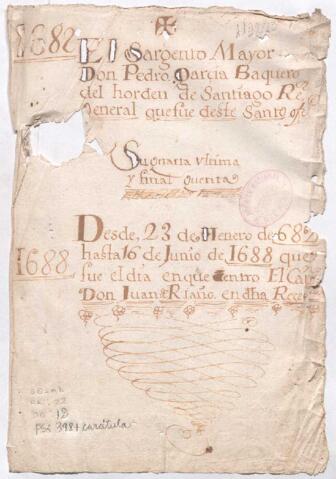 1682
El Sargento Mayor
Don Pedro Garcia Baquero
del horden de Santiago Re
General que fue deste Santo ofi
Su quarta Vltima
y final quenta
Desde, 23 de Henero de 682
1688 hasta 16 de Junio de 1688 que
fue el dia en que entro El Cap
Don Juan de Riaño. en dha Rece
18
PS: 3984 carátula